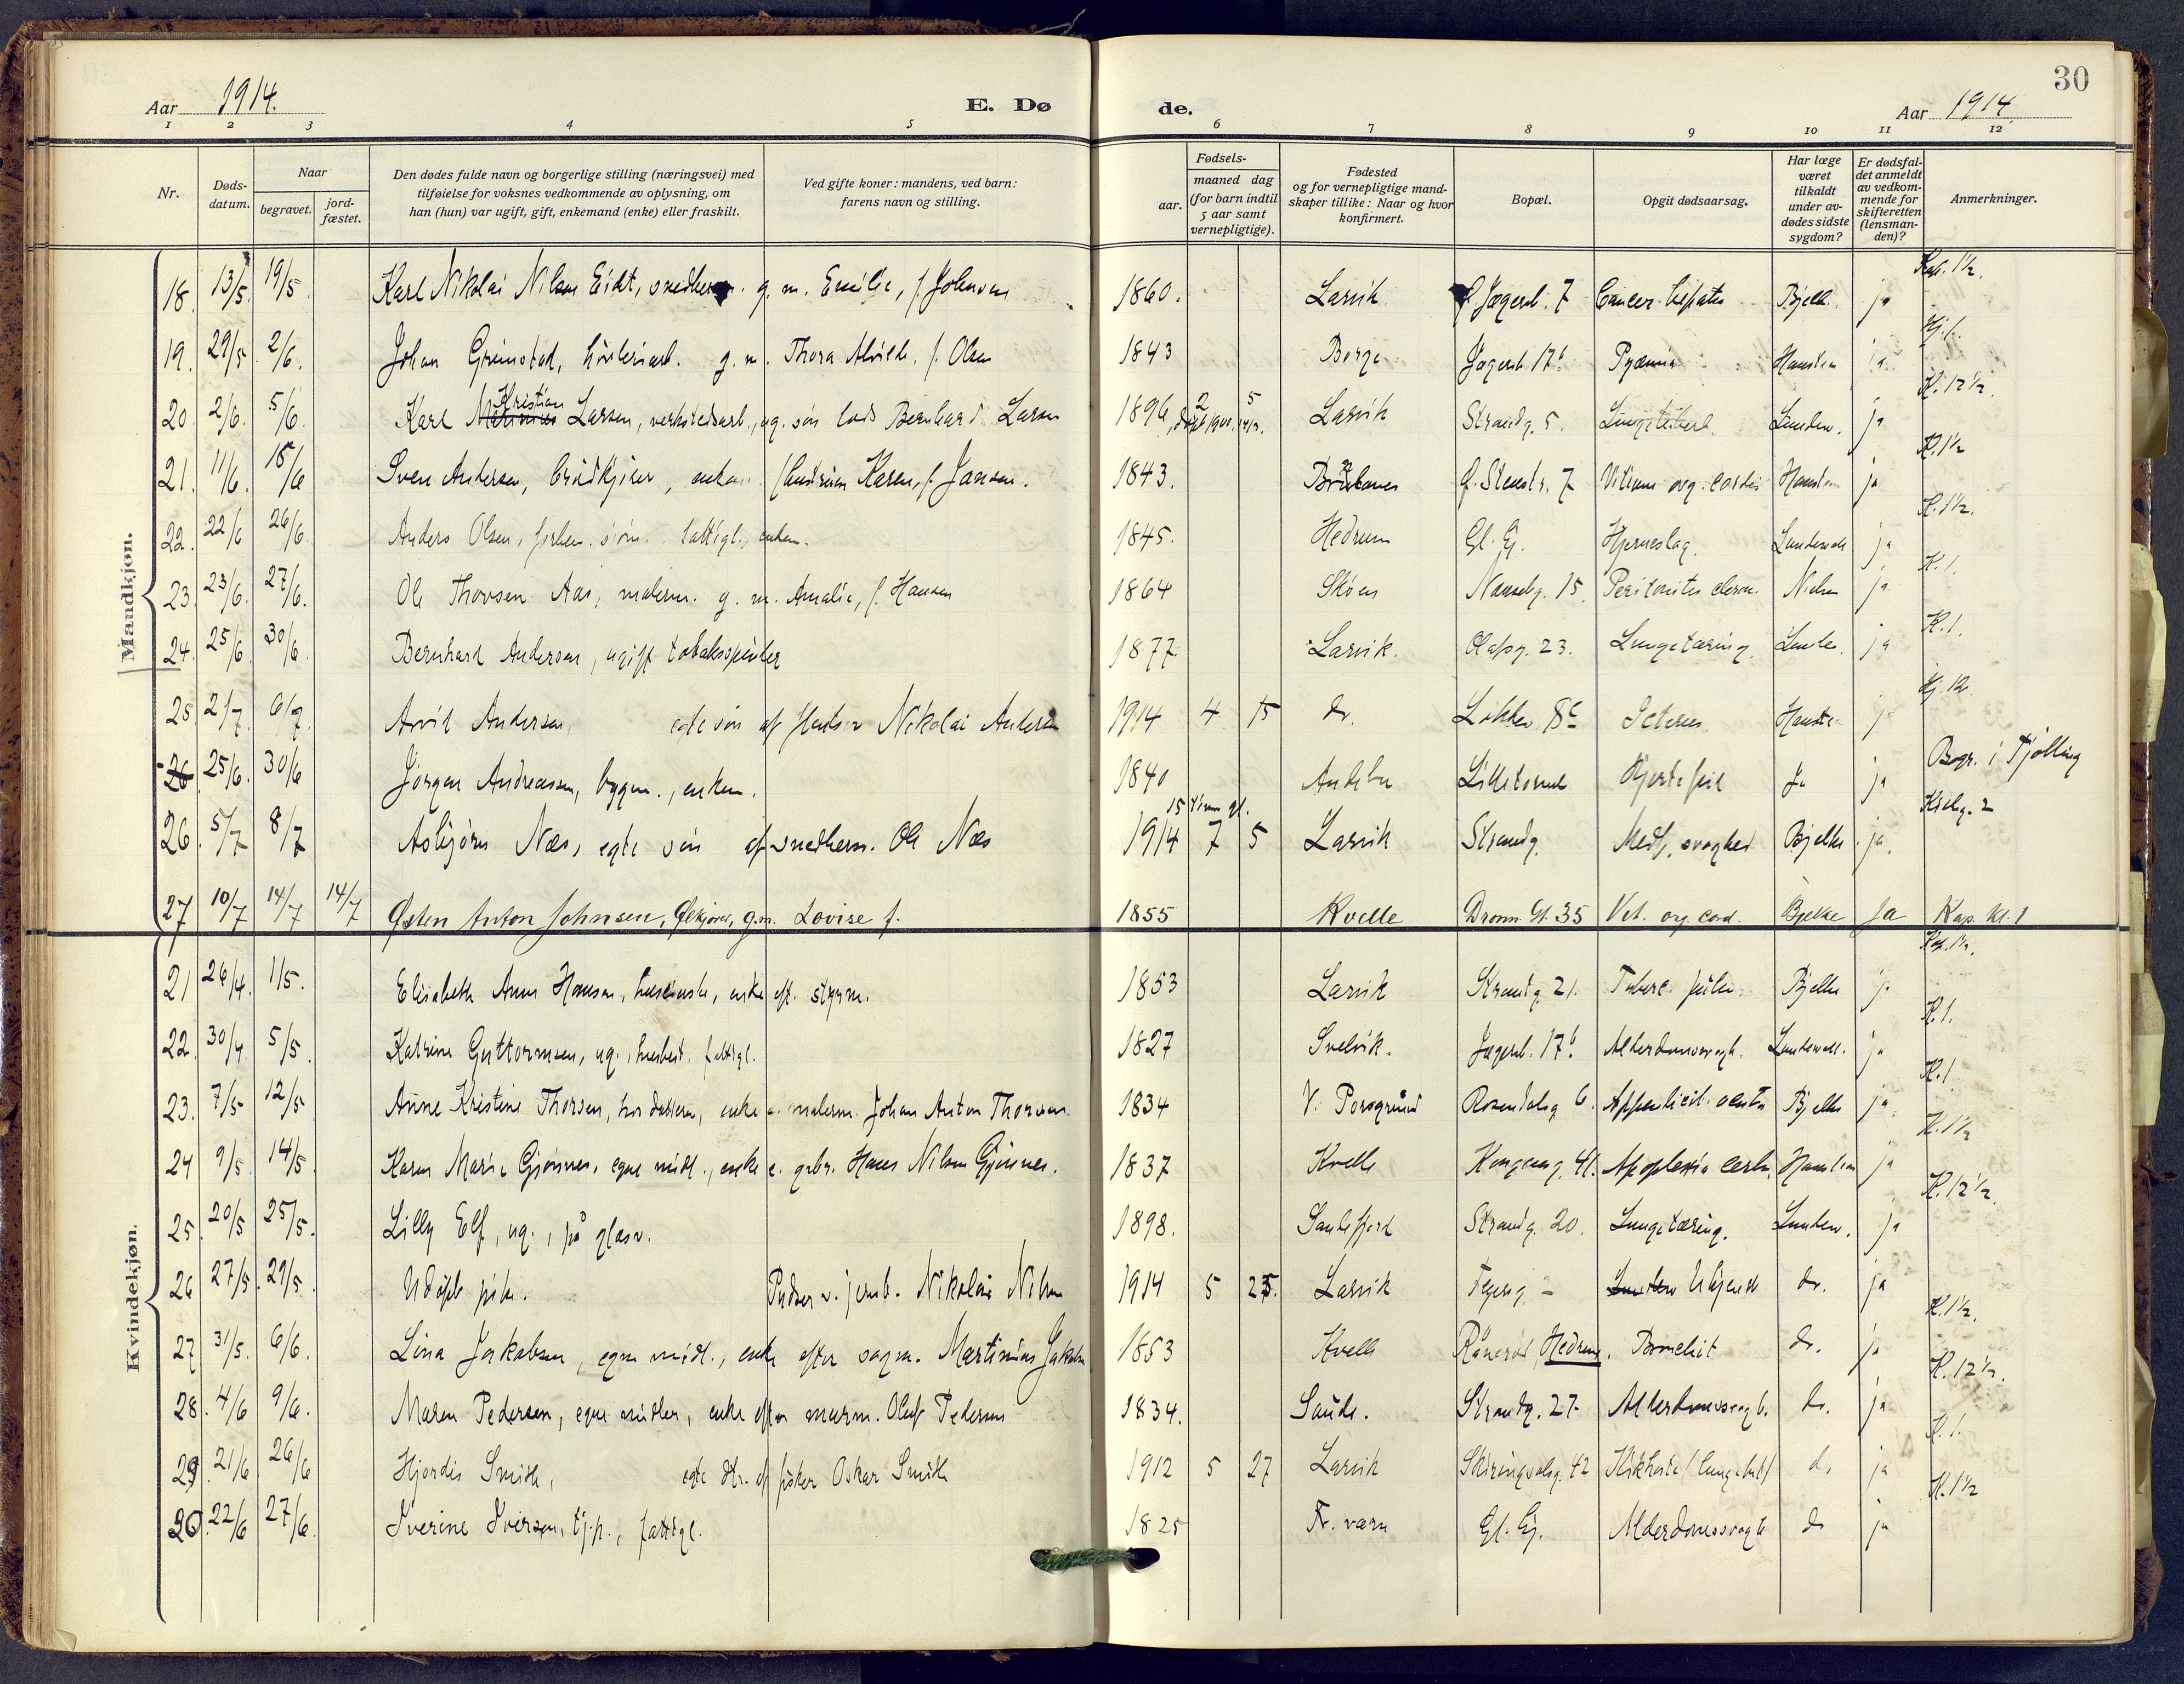 30
Aar 1914. E. Døde. Aar 1914.
1 2 3 4 5 6 7 8 9 10 11 12
Nr. Dødsdatum. Naar begravet. jordfæstet. Den dødes fulde navn og borgerlige stilling (næringsvei) med tilføielse for voksnes vedkommende av oplysning, om han (hun) var ugift, gift, enkemand (enke) eller fraskilt. Ved gifte koner: mandens, ved barn: farens navn og stilling. Fødsels- aar. maaned dag (for barn indtil 5 aar samt vernepligtige). Fødested og for vernepligtige mandskaper tillike: Naar og hvor konfirmert. Bopæl. Opgit dødsaarsag. Har læge været tilkaldt under avdødes sidste sygdom? Er dødsfaldet anmeldt av vedkommende for skifteretten (lensmanden)? Anmerkninger.
Mandkjøn.
18. 13/5. 19/5. Karl Nikolai Nilsen Eidt, g. m. Emilie, f. Johnsen 1860. Larvik 7 Cancer hepatis Bjelk. ja Kap. 1½.
19. 29/5 2/6. Johan Grimstad, g. m. Thora Alvilde, f. Olsen 1843 Borge Jegersb 17b Pyæmia ja Kj. 1.
20. 2/6. 5/6. Karl Kristian Larsen, verkstedsarb., ug. søn lods Bernhard Larsen 1896 2 5 Larvik Strandg. 5. Lungetuberk. Lundew. ja K. 12½.
21. 11/6. 15/6 Sven Andersen, Karen, f. Jansen. 1843. f. Stenstr. 7 Vitium org. cordis ja K. 1½
22. 22/6 26/6. Anders Olsen, forhen. sjøm. fattigl., enkem. 1845. Hedrum Gl. Ej. Hjerneslag. Lundewall ja K. 1½.
23. 23/6. 27/6. Ole Thovsen Aas, malerm. g. m. Amalie, f. Hansen 1864 Skøen Nansetg. 15. Peritonitis Nielsen ja K. 1.
24. 25/6 30/6. Bernhard Andersen, ugift tobaksspinder 1877 Larvik. Olafsg. 23. Lungetæring. Lundew. ja K. 1.
25. 2/7. 6/7. Arvid Andersen, egte søn af Nikolai Andersen 1914 4 15 do. Løkken 8c Icterus ja Kj. 12.
26 25/6. 30/6 Jørgen Andreassen, bygm., enkem. 1840 Andebu Lilletorvet Hjertefeil Ja ja Begr. i Tjølling
26. 5/7 8/7 Asbjørn Næs, egte søn af snedkerm. Ole Næs 15 timer gl. 1914 7 5 Larvik Strandg. Medf. svaghed Bjelke ja. 2
27 10/7 14/7 14/7 Østen Anton Johnsen, Ølkjører, g.m. Lovise f. 1855 Kvelle Dronn. Gt. 35 Vit. org. cord. Bjelke Ja Kap. kl. 1
Kvindekjøn.
21 26/4. 1/5. Elisabeth Anna Hansen, enke eft. styrm. 1853 Larvik Strandg. 21. Tuberc. pulm. Bjelke ja Kap. 1½.
22. 30/4. 5/5. Katrine Guttormsen, ug., fattigl. 1827 Svelvik. Jegersb. 17b. Alderdomssvagh. Lundewall. ja K. 1.
23. 7/5 12/5. Anne Kristine Thorsen, hos datteren, enke e. malerm. Johan Anton Thorsen. 1834 V. Porsgrund Rosendalsg 6. Appendicit. acuta Bjelke ja. K. 1.
24 9/5. 14/5. Karen Marie Gjønnes, egne midl., enke e. grbr. Hans Nilsen Gjønnes. 1837 Kvelle Kongeng. 41. Apoplexia cerebr. ja K. 1½
25. 20/5 25/5. Lilly Elf, ug., på glasv. 1898. Sandefjord Strandg. 20. Lungetæring. Lundew. ja K. 12½.
26 27/5. 29/5. Udøpt pike. Pudser v. jernb. Nikolai Nilsen 1914 5 25. Larvik Ukjendt do. ja
27. 31/5. 6/6. Lina Jakobsen, egne midl., enke efter sagm. Martinius Jakobsen 1853 Kvelle Rånerød, Hedrum. Bronchit do. ja K. 1½.
28. 4/6 9/6. Maren Pedersen, egne midler, enke efter murm. Oluf Pedersen 1834. Saude. Strandg. 27. Alderdomssvagh. do. ja K. 12½.
29. 21/6. 26/6 Hjordis Smith, egte dtr. af fisker Oskar Smith 1912 5 27 Larvik Skiringsalsg. 42 Kikhoste (lungebet) do ja K. 1.
30. 22/6 27/6. Iverine Iversen, tj.p., fattigl. 1825 Fr. værn Gl. Ej. Alderdomssvagh do ja K. 1½